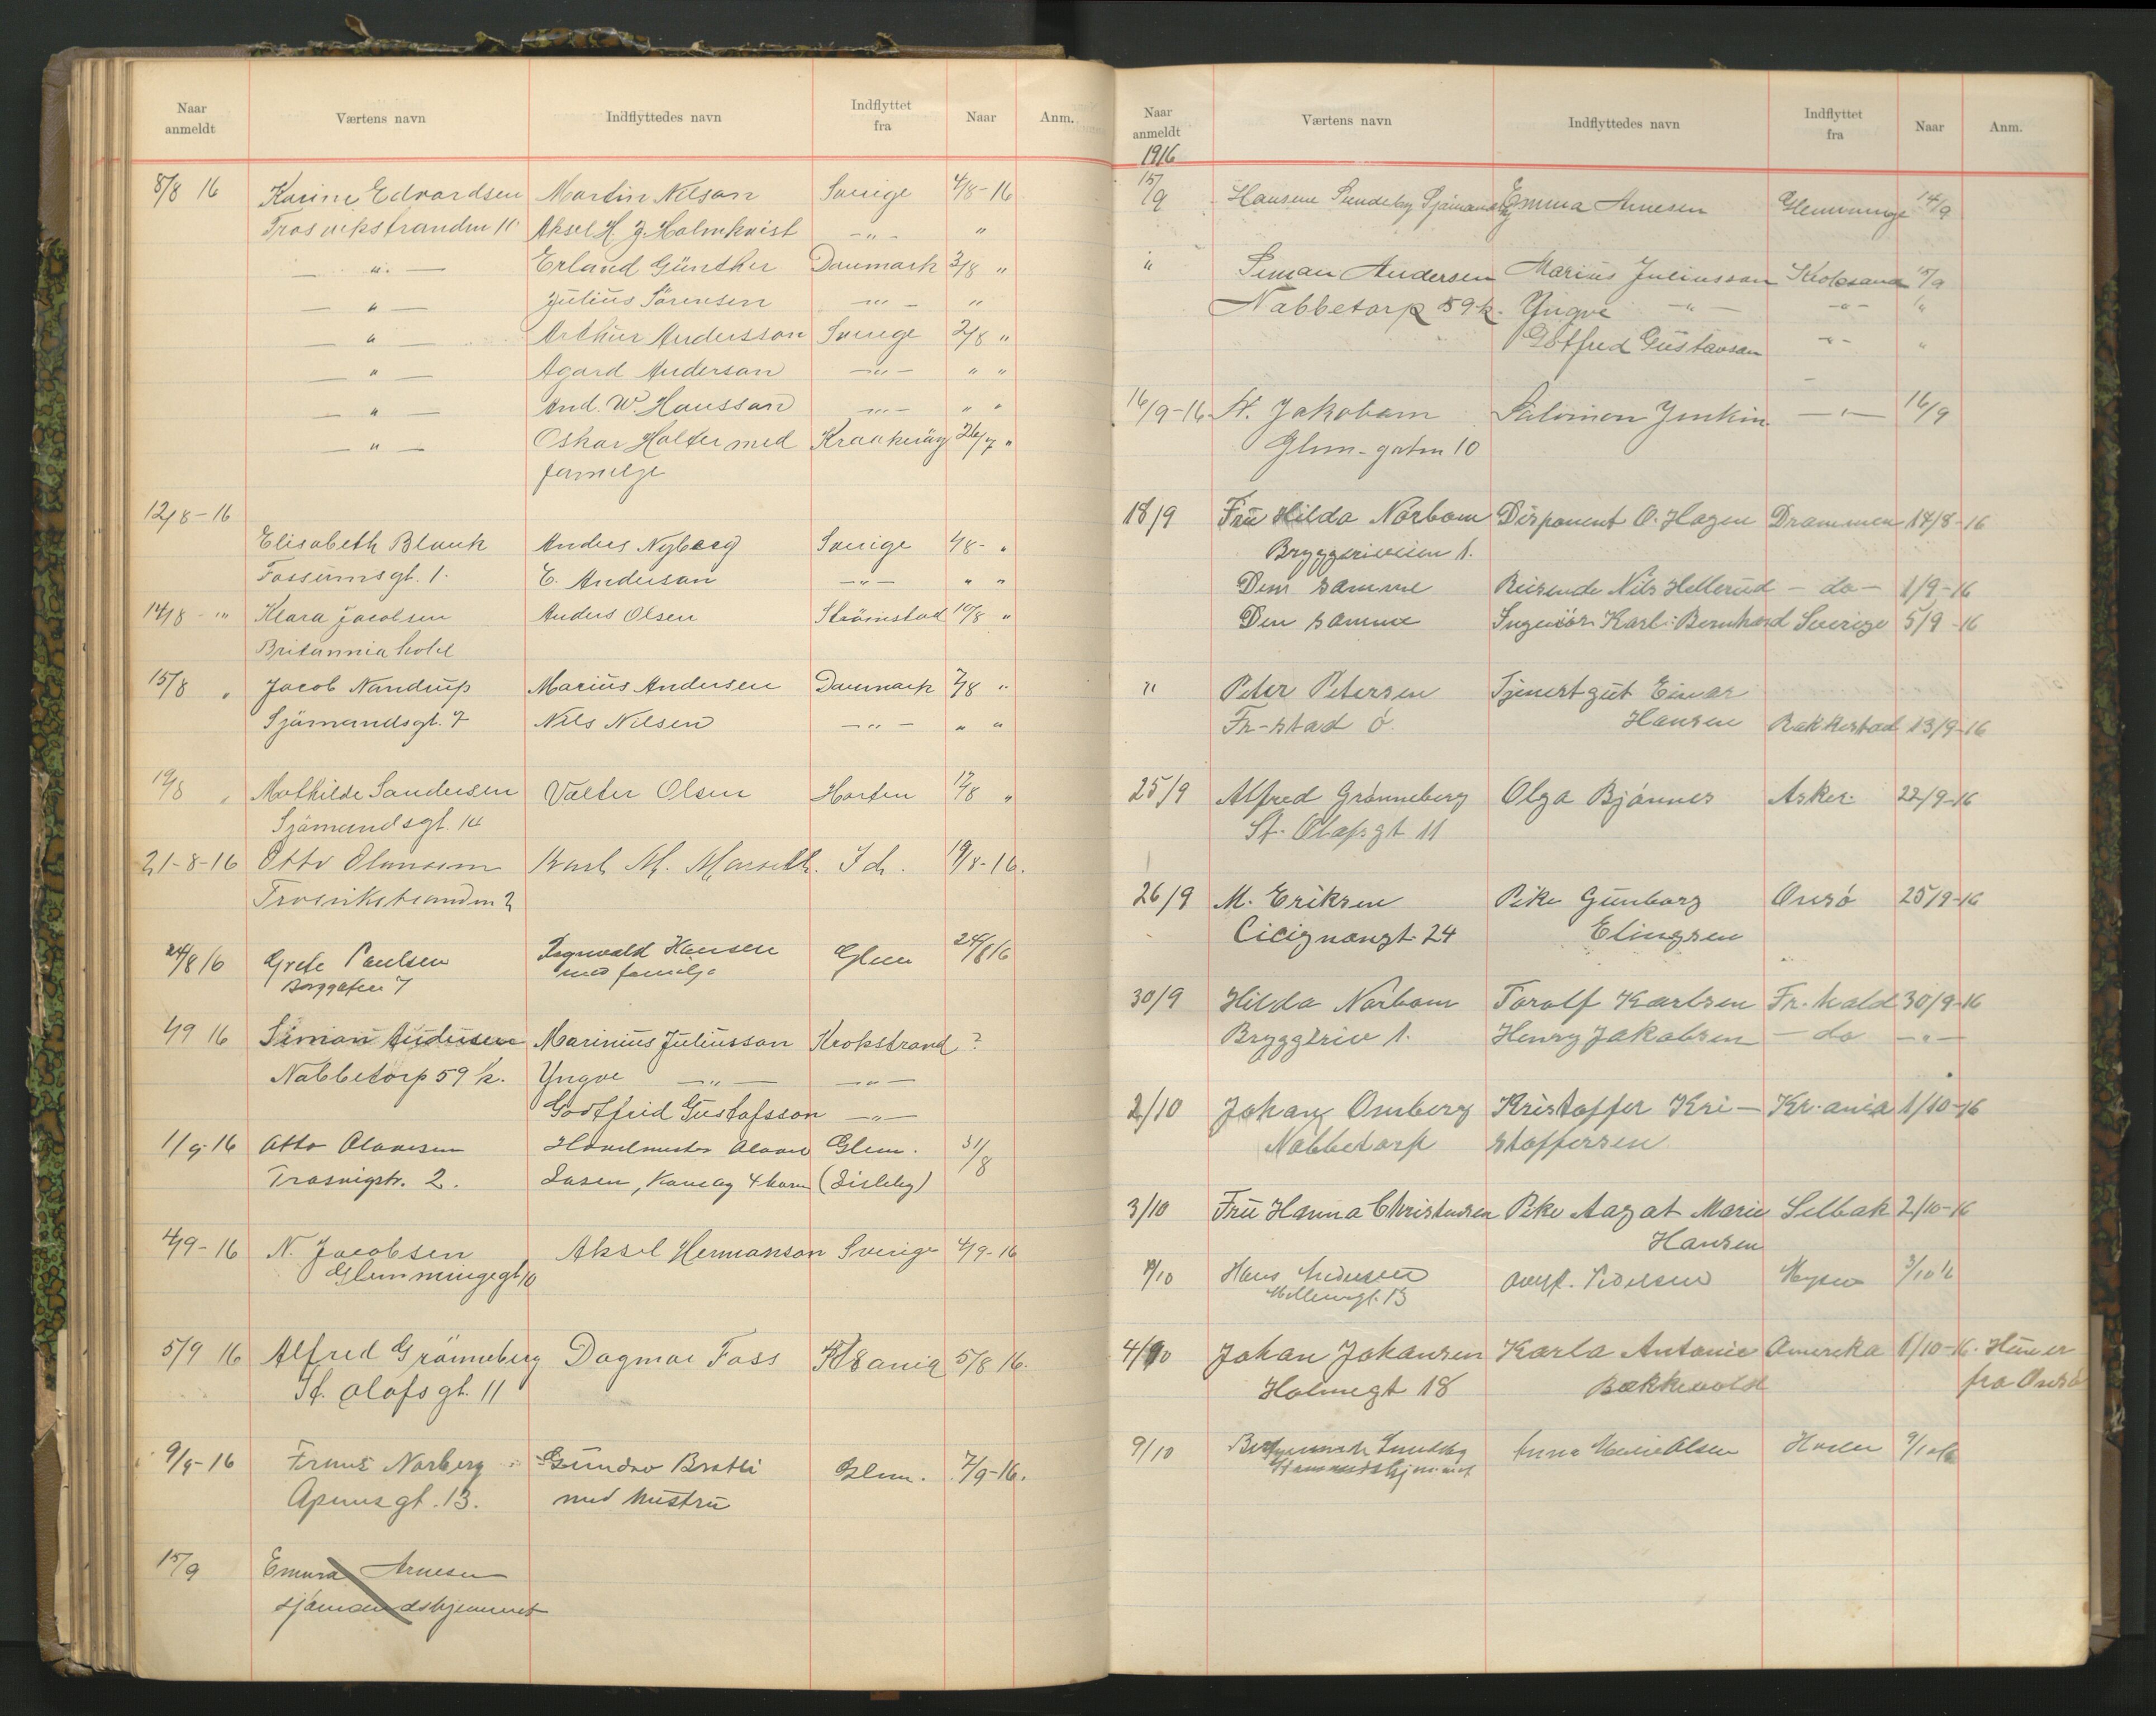 Naar anmeldt Værtens navn Indflyttedes navn Indflyttet fra Naar Anm.
8/8 16 Karine Edvardsen Martin Nilsan Sverige 4/8-16
Trosvikstranden 11 Aksel H. J. Holmkvist -"- "
-"- Erland Günther Danmark 3/8 "
-"- Julius Sørensen -"- "
-"- Arthur Andersson Sverige 2/8 "
-"- Agard Anderson -"- " "
-"- And. W. Hansson -"- " "
-"- Oskar Holter med Kraakerøy 26/7 "
familje
12/8-16
Elisabeth Blank Anders Nyberg Sverige 4/8- "
Fossumsgt. 1. E. Anderson -"- " "
14/8-" Klara Jacobsen Anders Olsen Strömstad 10/8 "
Britannia hotel
15/8 " Jacob Nandrup Marius Andersen Danmark 7/8 "
Sjömandsgt. 7 Nils Nilsen -"- " "
19/8 " Mathilde Sandersen Valter Olsen Horten 17/8 "
Sjömandsgt. 14
21-8-16 Otto Olavesen Karl M. Id. 19/8-16.
Trosvikstranden 2
24/8 16 Grete Paulsen Ragnvald Hansen Glem 24/8 16
Borggaten 7 med familje
4/9 16 Siman Andersen Marinius Juliusson Krokstrand ?
Nabbetorp 59 k. Yngve -"- -"-
Godtfrid Gustafsson -"-
1/9-16 Otto Olavesen Olaves Glem. 31/8
Trosvigstr. 2. Lasen, Kone og 4 barn (Lisleby)
4/9-16 N. Jacobsen Aksel Hermanson Sverige 4/9-16
Glemmingegt 10
5/9 16 Alfred Grönneberg Dagmar Foss Kr.ania 5/8 16.
St. Olafsgt. 11
9/9-16 Frans Norberg Gundro Bratli Glem. 7/9-16.
Apenesgt. 13. med hustru
15/9 Emma Arnesen
sjömandshjemmet
Naar anmeldt Værtens navn Indflyttedes navn Indflyttet fra Naar Anm.
1916
15/9 Hansine Sundeby Sjömandshj Emma Arnesen Glemminge 14/9
" Siman Andersen Marius Juliusson Krokstrand 15/9
Nabbetorp 59 k. Yngve -"- -"- "
Gotfred Gustavsan -"- "
16/9-16 N. Jakobsen Salomon Junkin -"- 16/9
Glem-gaten 10
18/9 Fru Hilda Norbom Disponent O. Hagen Drammen 14/8-16
Bryggeriveien 1.
Den samme Reisende Nils Hellerud - do - 1/9-16
Den samme Ingeniør Karl Bernhard Sverige 5/9-16
" Peter Petersen Tjenestgut Einar
Fr-stad Ö. Hansen Rakkestad 13/9-16
25/9 Alfred Grønneberg Olga Bjønnes Asker 22/9-16
St. Olafsgt 11
26/9 M. Eriksen Pike Gunborg Onsø 25/9-16
Cicignongt. 24 Elingsen
30/9 Hilda Norbom Torolf Karlsen Fr.hald 30/9-16
Bryggeriv 1. Henry Jakobsen - do -"-
2/10 Johan Omberg Kristoffer Kri- Kr.ania 1/10-16
Nabbetorp stoffersen
3/10 Fru Hanna Christensen Pike Aagat Marie Selbak 2/10-16
Hansen
4/10 Hans Andersen Pedersen Mysen 3/10 16
Møllergt. 13
4/10 Johan Johansen Karla Antonie Amerika 1/10-16. Hun er
Holmegt 18 Bækkevold fra Onsø
9/10 Sundeby Anna Marie Olsen 9/10 16
Sjømandshjemmet